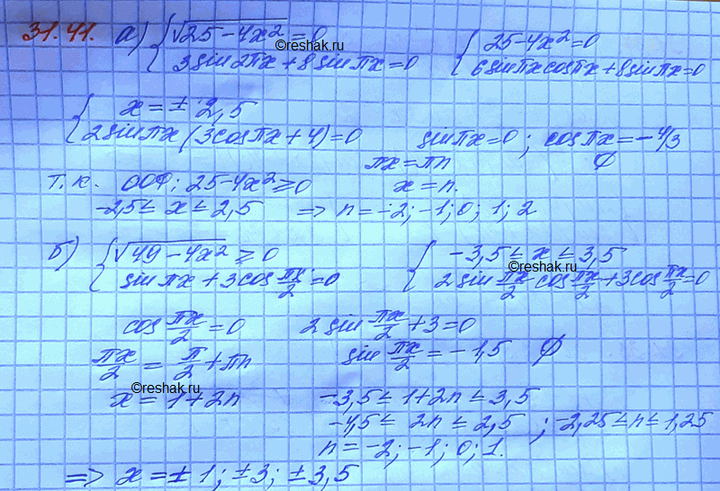 31.41. а) { √25-4x² = 0
3sin2πx + 8sinπx = 0
{ 25-4x² = 0
6sinπx cosπx + 8sinπx = 0
©reshak.ru
{ x = ± 2,5
2sinπx (3cosπx + 4) = 0
sinπx = 0 ; cosπx = -4/3
πx = πn ∅
т.к. ООФ: 25-4x² ≥ 0 x = n.
-2,5 ≤ x ≤ 2,5 => n = -2; -1; 0; 1; 2
б) { √49-4x² ≥ 0
sinπx + 3cos πx/2 = 0
{ -3,5 ≤ x ≤ 3,5
2sin πx/2 cos πx/2 + 3cos πx/2 = 0
©reshak.ru
cos πx/2 = 0 2sin πx/2 + 3 = 0
πx/2 = π/2 + πn sin πx/2 = -1,5 ∅
©reshak.ru
x = 1+2n -3,5 ≤ 1+2n ≤ 3,5
-4,5 ≤ 2n ≤ 2,5 ; -2,25 ≤ n ≤ 1,25
n = -2; -1; 0; 1.
=> x = ± 1; ±3; ± 3,5